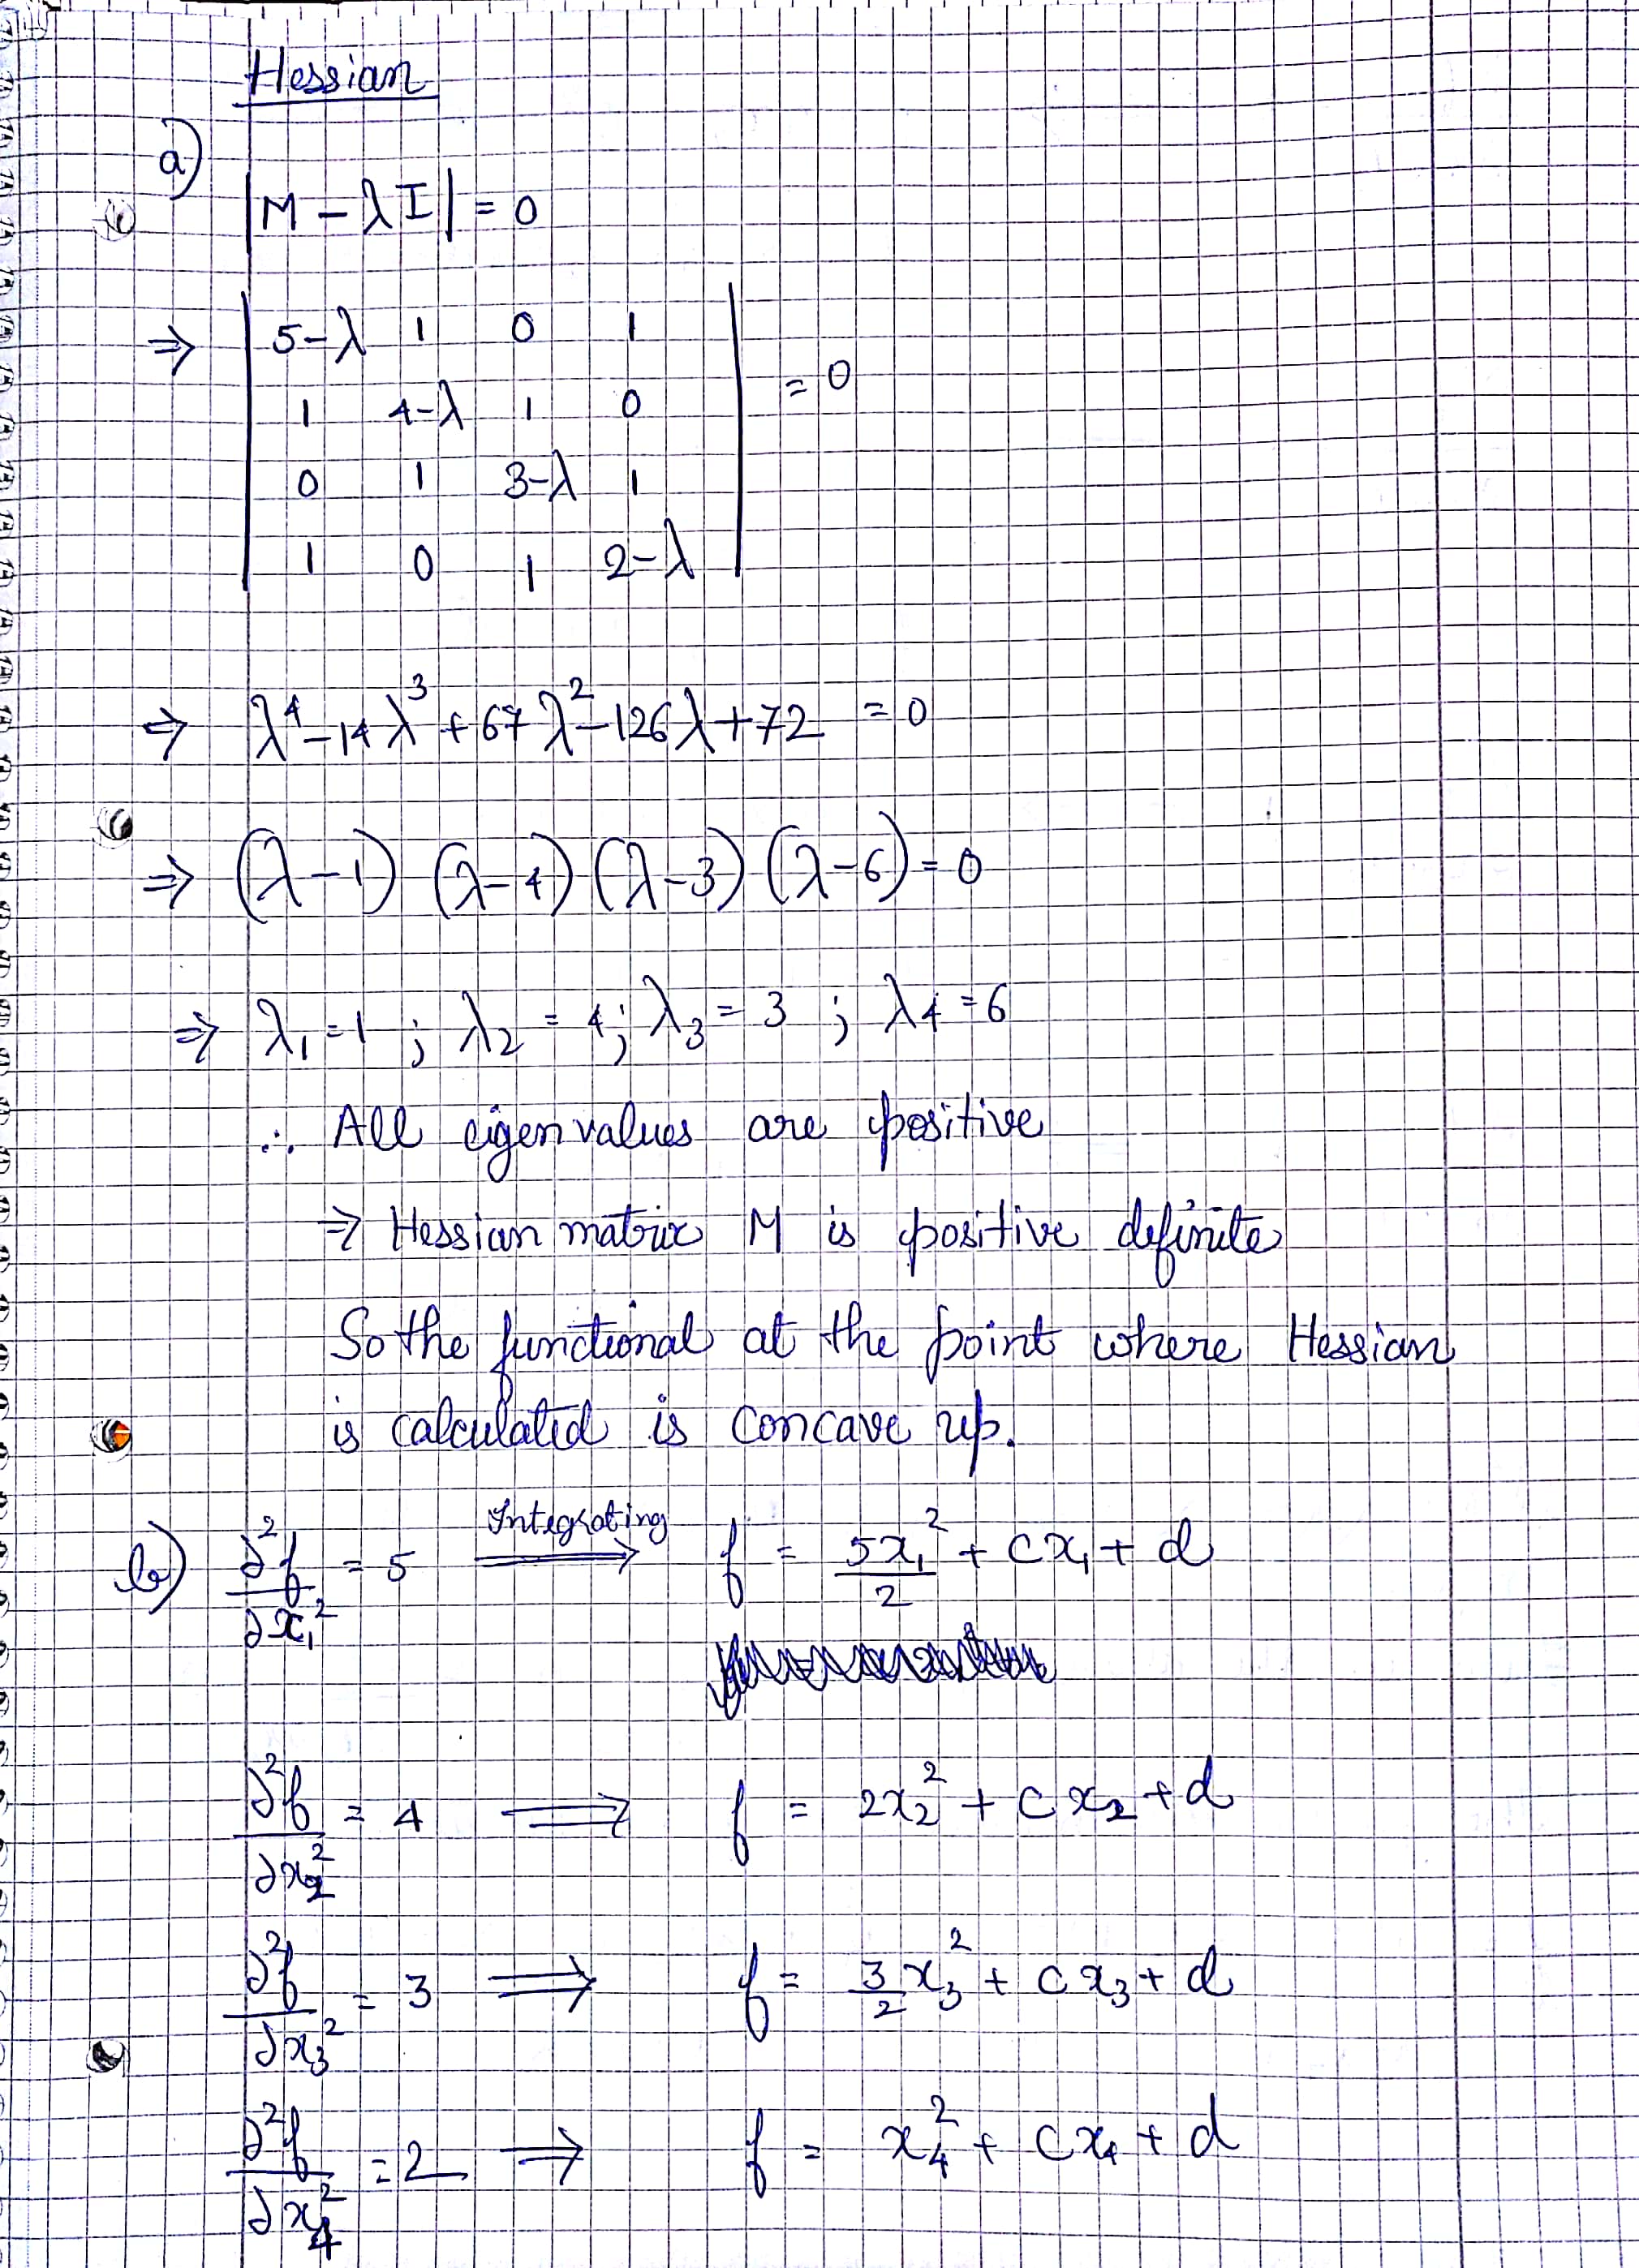 Hessian
a)
|M - λI| = 0
⇒ | 5-λ 1 0 1 |
| 1 4-λ 1 0 | = 0
| 0 1 3-λ 1 |
| 1 0 1 2-λ |
⇒ λ⁴ - 14λ³ + 67λ² - 126λ + 72 = 0
⇒ (λ-1) (λ-4) (λ-3) (λ-6) = 0
⇒ λ₁ = 1 ; λ₂ = 4 ; λ₃ = 3 ; λ₄ = 6
∴ All eigen values are positive
⇒ Hessian matrix M is positive definite
So the functional at the point where Hessian
is calculated is concave up.
b) ∂²f/∂x₁² = 5 Integrating ⟹ f = 5x₁²/2 + cx₁ + d
∂²f/∂x₂² = 4 ⟹ f = 2x₂² + cx₂ + d
∂²f/∂x₃² = 3 ⟹ f = 3/2 x₃² + cx₃ + d
∂²f/∂x₄² = 2 ⟹ f = x₄² + cx₄ + d